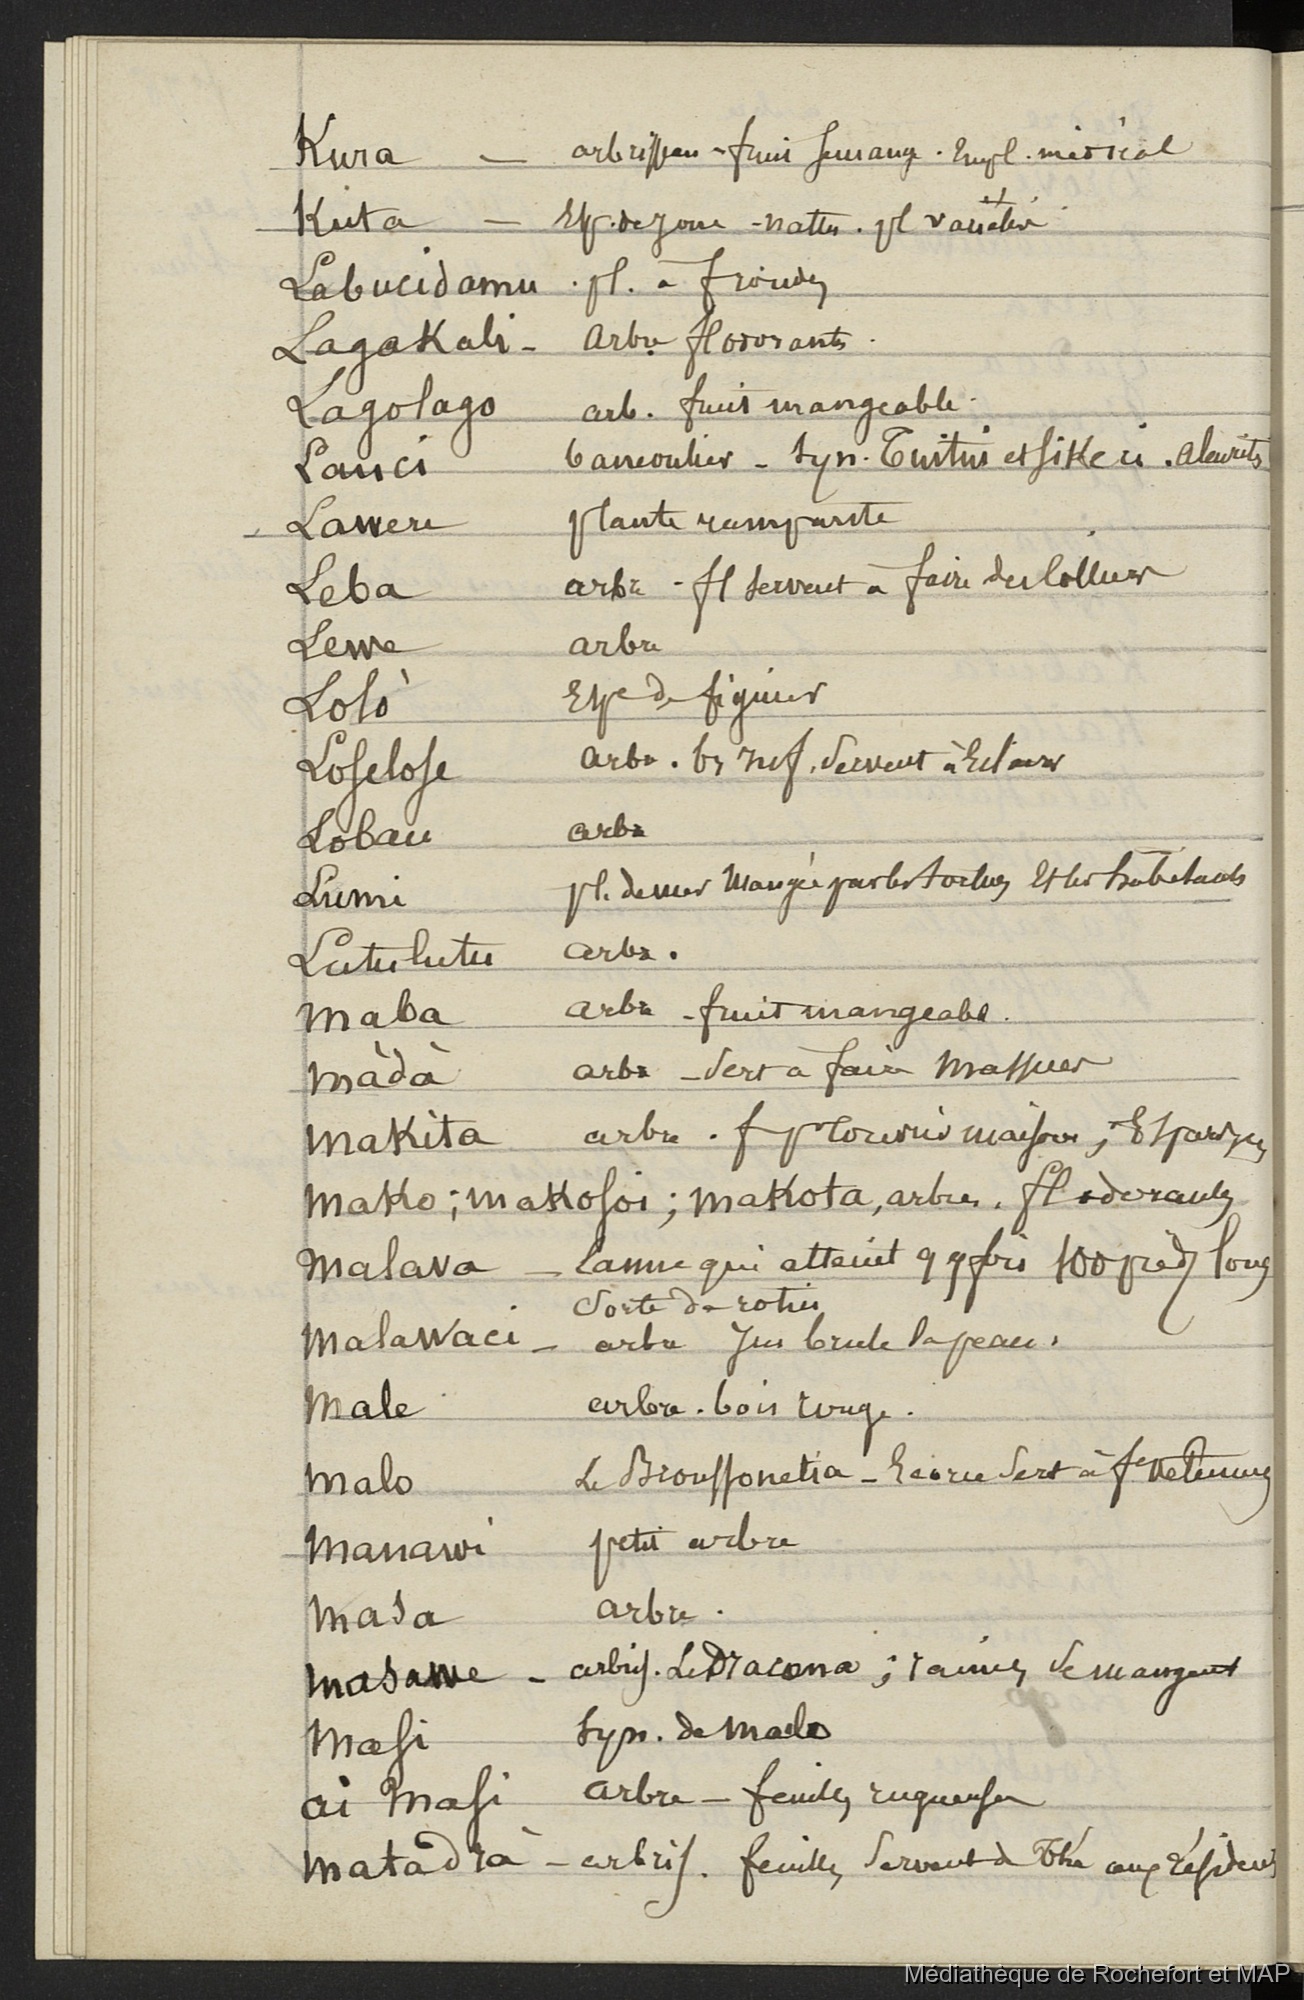 Kura — arbrisseau - fruit se mange. Empl. médical
Kuta — Esp. de jonc - nattes. pl variétés
Labucidamu . pl. à frondes
Lagakali - Arbre fl odorants.
Lagolago arb. fruit mangeable.
Lauci bancoulier - Syn. Tuitui et Sikeci. Aleurites
Lawere plante rampante
Leba arbre - fl servent à faire des colliers
Lewe arbre
Lolò Espe de figuier
Loselose arbre. bs rés. servent à éclairer
Lobau arbre
Lumi pl. de mer mangée par les tortues et les habitants
Lutulutu arbre.
Maba arbre - fruit mangeable.
Màdà arbre - sert à faire massues
Makita arbre. f p couvrir maisons ; Esparges
Mako ; makosoi ; makota, arbres. fl odorants
Malava — canne qui atteint qq fois 100 pieds long
Sorte de rotin
Malawaci - arbre Jus brule la peau.
Male arbre. bois rouge.
Malo Le Broussonetia - Ecorce sert à fe vêtements
Manawi petit arbre
Masa arbre.
Masawe - arbris. Le Dracena ; racines se mangent
Masi Syn. de malo
ai Masi arbre - feuilles rugueuses
Matadrà - arbris. feuilles servent de Thé aux résidents
Médiathèque de Rochefort et MAP